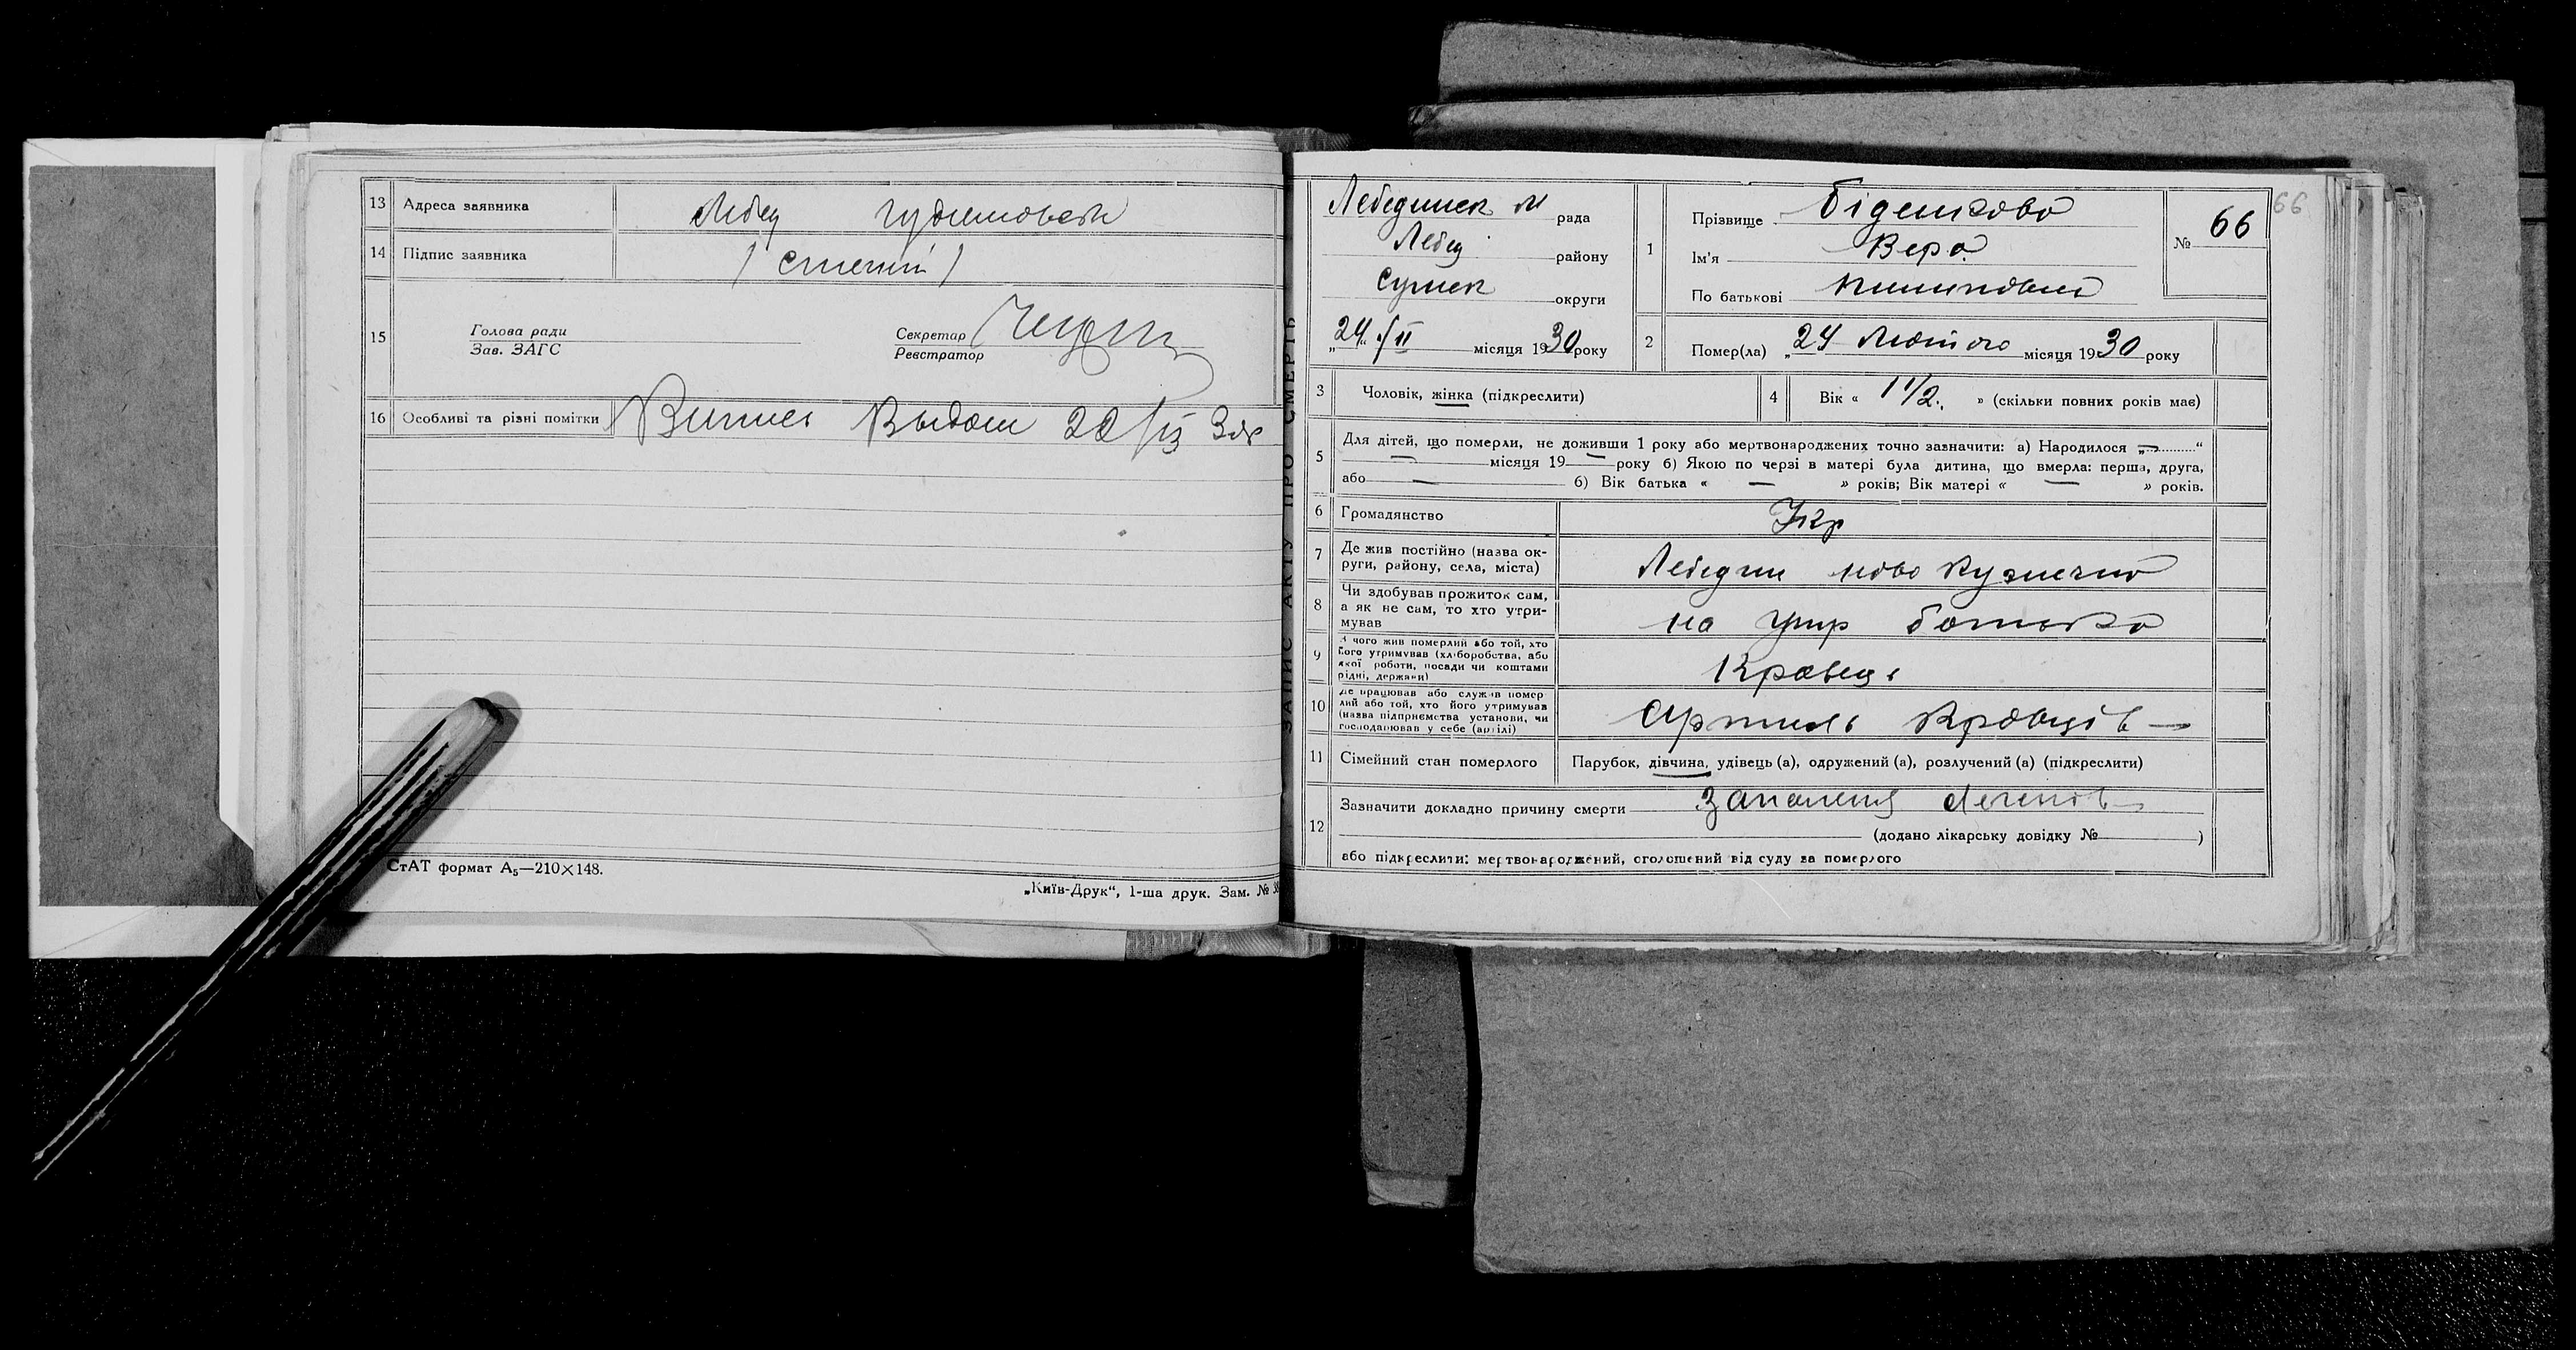 13 Адреса заявника Лебед
14 Підпис заявника
15 Голова ради
Зав. ЗАГС
Секретар
Реєстратор
16 Особливі та різні помітки
СтАТ формат А₅—210×148.
„Київ-Друк“, 1-ша друк. Зам. №
ЗАПИС АКТУ ПРО СМЕРТЬ
Лебединск м рада
Лебед району
Сумск округи
„24“ /II місяця 1930 року
1 Прізвище
Ім'я Вера
По батькові
№ 66
66
2 Помер(ла) „24 Лютого місяця 1930 року
3 Чоловік, жінка (підкреслити)
4 Вік « 1 1/2. » (скільки повних років має)
5 Для дітей, що померли, не доживши 1 року або мертвонароджених точно зазначити: а) Народилося „—“
— місяця 19— року б) Якою по черзі в матері була дитина, що вмерла: перша, друга,
або — б) Вік батька « — » років; Вік матері « — » років.
6 Громадянство Укр
7 Де жив постійно (назва ок-
руги, району, села, міста) Лебедин ново Кузнечна
8 Чи здобував прожиток сам,
а як не сам, то хто утри-
мував на утр батька
9 З чого жив померлий або той, хто
його утримував (хліборобства, або
якої роботи, посади чи коштами
рідні, держави) Кравець
10 Де працював або служив помер
лий або той, хто його утримував
(назва підприємства установи, чи
господарював у себе (артілі) Артиль Кравців —
11 Сімейний стан померлого Парубок, дівчина, удівець (а), одружений (а), розлучений (а) (підкреслити)
12 Зазначити докладно причину смерти Запаления легенів
(додано лікарську довідку № )
або підкреслити: мертвонароджений, оголошений від суду за померлого